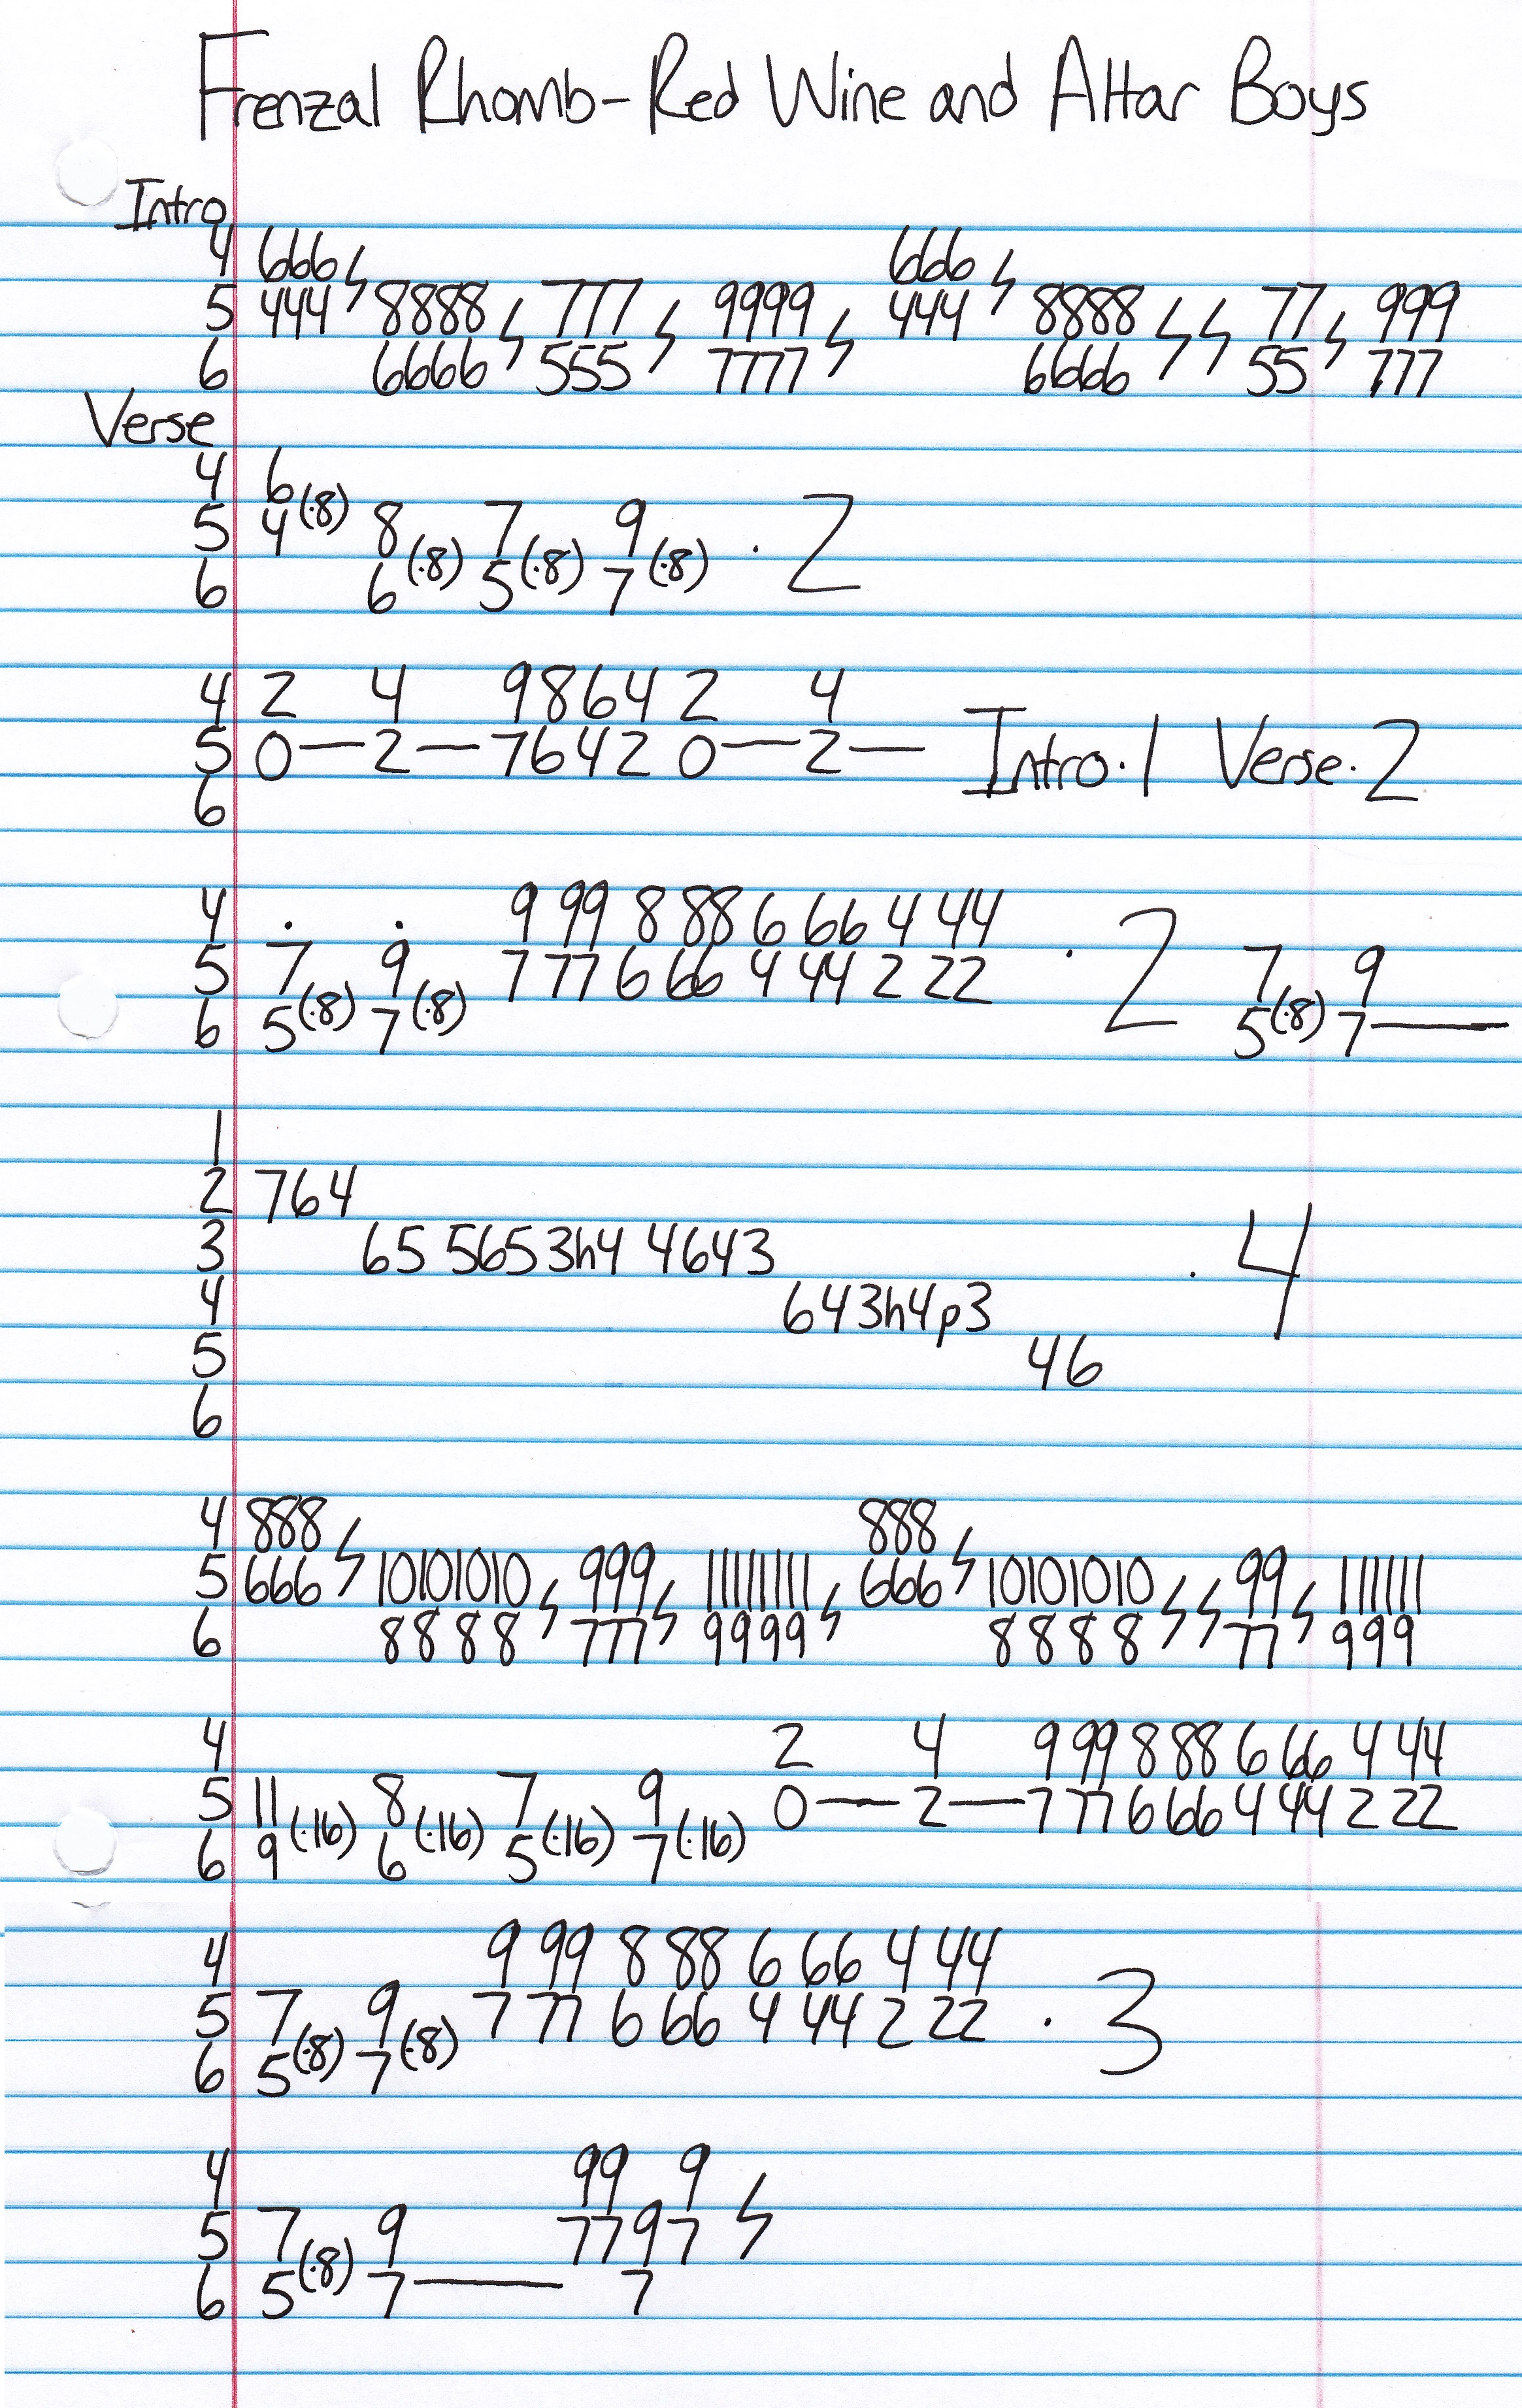 Frenzal Rhomb-Red Wine and Altar Boys
Intro
4 666 ϟ 666 ϟ
5 444 8888 ϟ 777 ϟ 9999 ϟ 444 8888 ϟ ϟ 77 ϟ 999
6 6666 555 7777 6666 55 777
Verse
4 6
5 4 (·8) 8 7 9 · 2
6 6 (·8) 5 (·8) 7 (·8)
4 2 4 9 8 6 4 2 4
5 0 — 2 — 7 6 4 2 0 — 2 — Intro·1 Verse·2
6
4 · · 9 99 8 88 6 66 4 44
5 7 9 7 77 6 66 4 44 2 22 · 2 7 9
6 5 (·8) 7 (·8) 5 (·8) 7 —
1
2 764
3 65 5653h4 4643 · 4
4 643h4p3
5 46
6
4 888 ϟ 888 ϟ
5 666 10101010 ϟ 999 ϟ 11111111 ϟ 666 10101010 ϟ ϟ 99 ϟ 111111
6 8888 777 9999 8888 77 999
4 2 4 9 99 8 88 6 66 4 44
5 11 8 7 9 0 — 2 — 7 77 6 66 4 44 2 22
6 9 (·16) 6 (·16) 5 (·16) 7 (·16)
4 9 99 8 88 6 66 4 44
5 7 9 7 77 6 66 4 44 2 22 · 3
6 5 (·8) 7 (·8)
4 99 9
5 7 9 7797 ϟ
6 5 (·8) 7 — 7